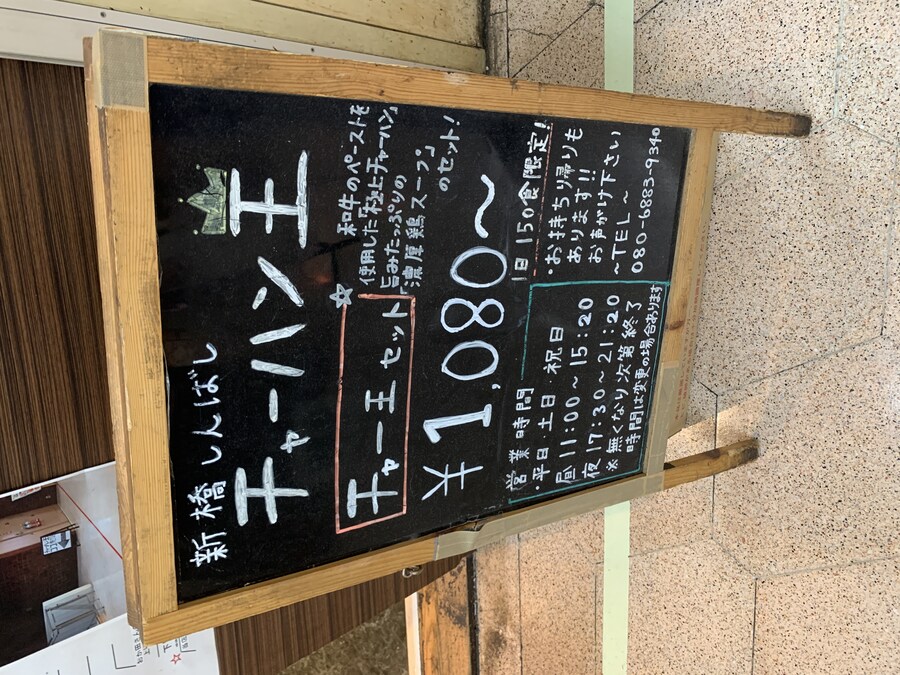 新橋 しんばし
チャーハン王
チャー王 セット
☆和牛のペーストを
使用した「極上チャーハン」
旨みたっぷりの
「濃厚鶏スープ」
のセット!
¥1,080〜
1日 150食限定!
営業時間
・平日・土日・祝日
昼 11:00〜15:20
夜 17:30〜21:20
※無くなり次第終了
時間は変更の場合あります
・お持ち帰りも
あります!!
お声がけ下さい
〜TEL〜
080-6883-9340